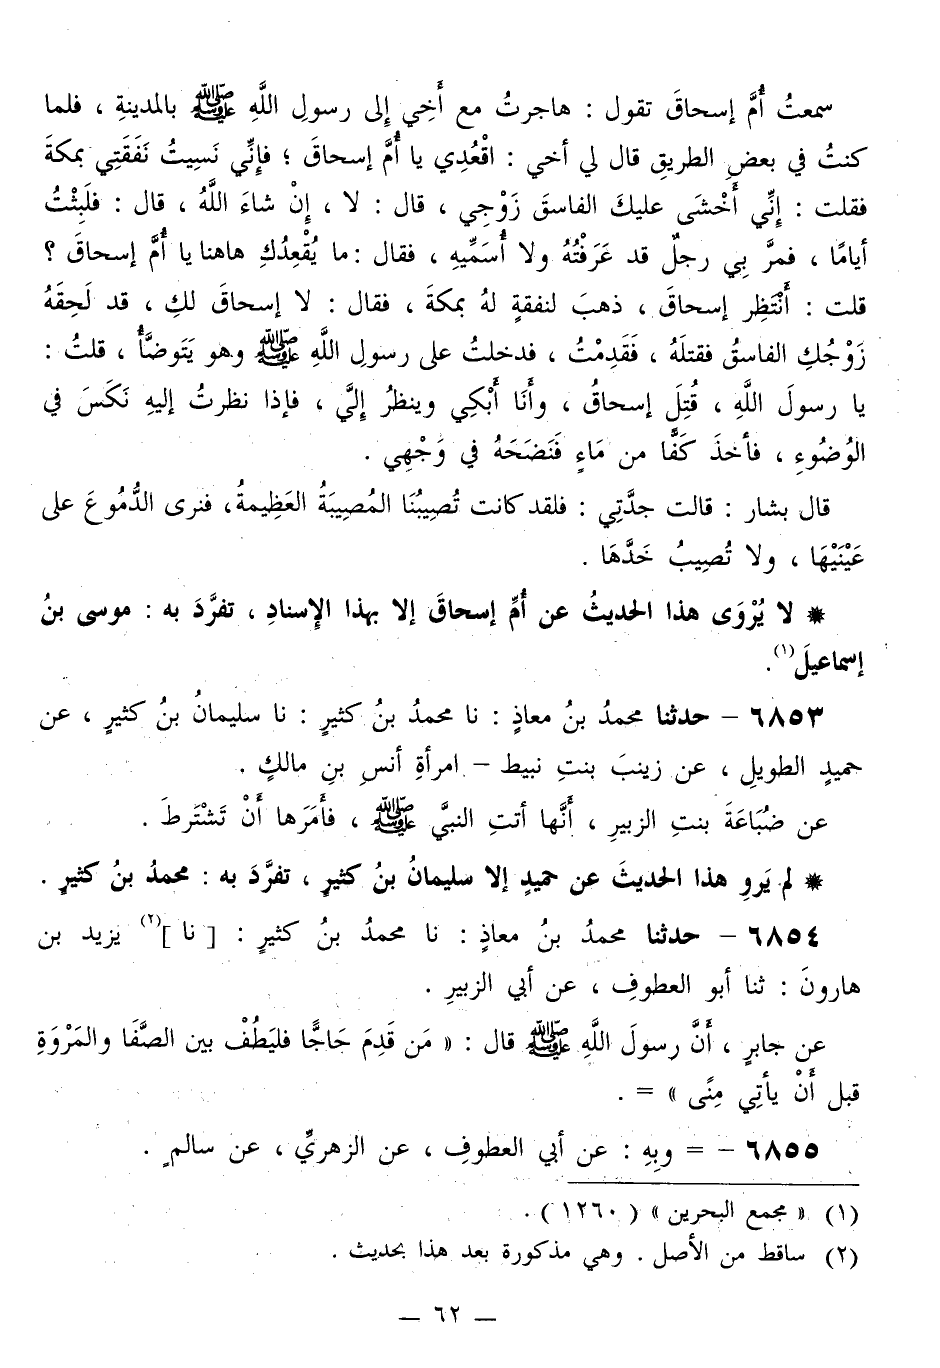 سمعتُ أُمَّ إسحاقَ تقول : هاجرتُ مع أَخِي إلى رسولِ اللَّهِ ﷺ بالمدينةِ ، فلما
كنتُ في بعضِ الطريقِ قال لي أخي : اقْعُدِي يا أُمَّ إسحاقَ ؛ فإنِّي نَسِيتُ نَفَقَتِي بمكةَ
فقلت : إنِّي أَخْشَى عليكَ الفاسقَ زَوْجِي ، قال : لا ، إنْ شاءَ اللَّهُ ، قال : فلَبِثْتُ
أيامًا ، فمرَّ بِي رجلٌ قد عَرَفْتُهُ ولا أُسَمِّيهِ ، فقال : ما يُقْعِدُكِ هاهنا يا أُمَّ إسحاقَ ؟
قلت : أَنْتَظِر إسحاقَ ، ذهبَ لنفقةٍ لهُ بمكةَ ، فقال : لا إسحاقَ لكِ ، قد لَحِقَهُ
زَوْجُكِ الفاسقُ فقتلَهُ ، فَقَدِمْتُ ، فدخلتُ على رسولِ اللَّهِ ﷺ وهو يَتَوضَّأُ ، قلتُ :
يا رسولَ اللَّهِ ، قُتِلَ إسحاقُ ، وأَنَا أَبْكِي وينظرُ إليَّ ، فإذا نظرتُ إليهِ نَكَسَ في
الوُضُوءِ ، فأخذَ كَفًّا من مَاءٍ فَنَضَحَهُ في وَجْهِي .
قال بشار : قالت جدَّتِي : فلقد كانت تُصِيبُنَا المُصِيبَةُ العَظِيمةُ، فنرى الدُّمُوعَ على
عَيْنَيْهَا ، ولا تُصِيبُ خَدَّهَا .
* لا يُرْوَى هذا الحديثُ عن أُمِّ إسحاقَ إلا بهذا الإسنادِ ، تفرَّدَ به : موسى بنُ
إسماعيلَ(١).
٦٨٥٣ – حدثنا محمدُ بنُ معاذٍ : نا محمدُ بنُ كثيرٍ : نا سليمانُ بنُ كثيرٍ ، عن
حميدٍ الطويلِ ، عن زينبَ بنتِ نبيط – امرأةِ أنسِ بنِ مالكٍ .
عن ضُبَاعَةَ بنتِ الزبيرِ ، أَنَّها أتتِ النبيَّ ﷺ ، فأَمَرَها أَنْ تَشْتَرِطَ .
* لم يَروِ هذا الحديثَ عن حميدٍ إلا سليمانُ بنُ كثيرٍ ، تفرَّدَ به : محمدُ بنُ كثيرٍ .
٦٨٥٤ – حدثنا محمدُ بنُ معاذٍ : نا محمدُ بنُ كثيرٍ : [ نا ](٢) يزيد بن
هارونَ : ثنا أبو العطوفِ ، عن أبي الزبيرِ .
عن جابرٍ ، أَنَّ رسولَ اللَّهِ ﷺ قال : « مَن قَدِمَ حَاجًّا فليَطُفْ بين الصَّفَا والمَرْوَةِ
قبل أَنْ يأتِي مِنًى » = .
٦٨٥٥ – = وبِهِ : عن أبي العطوفِ ، عن الزهريِّ ، عن سالمٍ .
(١) « مجمع البحرين » ( ١٢٦٠ ) .
(٢) ساقط من الأصل . وهي مذكورة بعد هذا بحديث .
– ٦٢ –